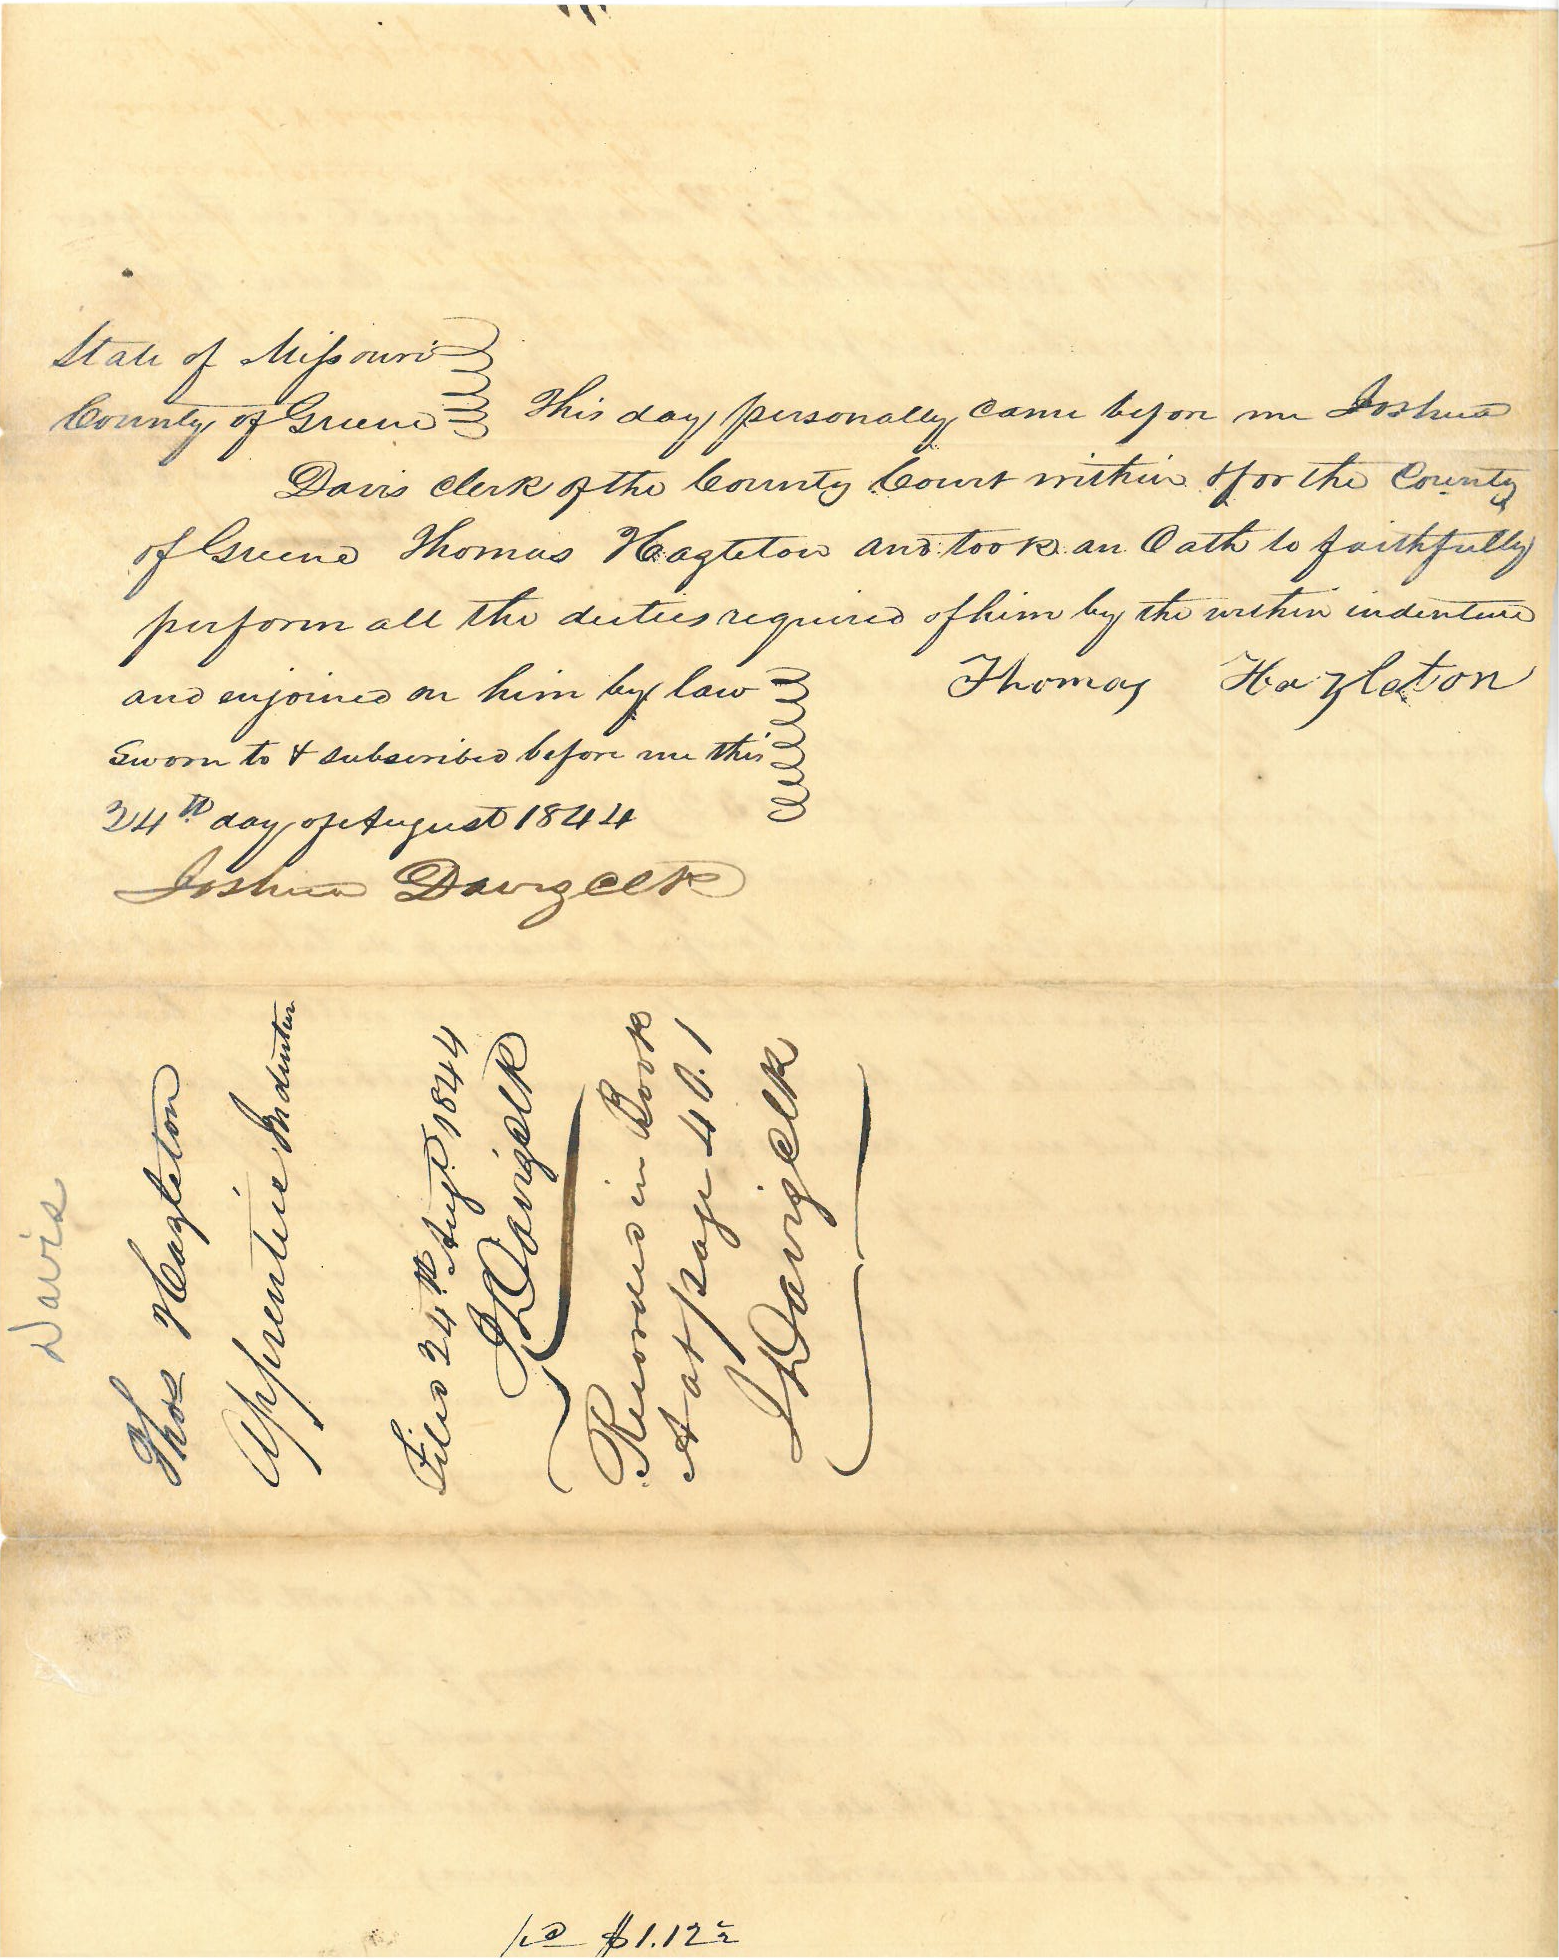 State of Missouri
County of Greene This day personally came before me Joshua
Davis clerk of the County Court within & for the County
of Greene Thomas Hazleton and took an Oath to faithfully
perform all the duties required of him by the within indenture
and enjoined on him by law
Thomas Hazleton
Sworn to & subscribed before me this
24th day of August 1844
Joshua Davis Clk
Davis
Thos Hazleton
Apprentice Indenture
Filed 24th Augt 1844
J Davis Clk
Recorded in Book
A at page 40.1
J Davis Clk
pd $1.12½